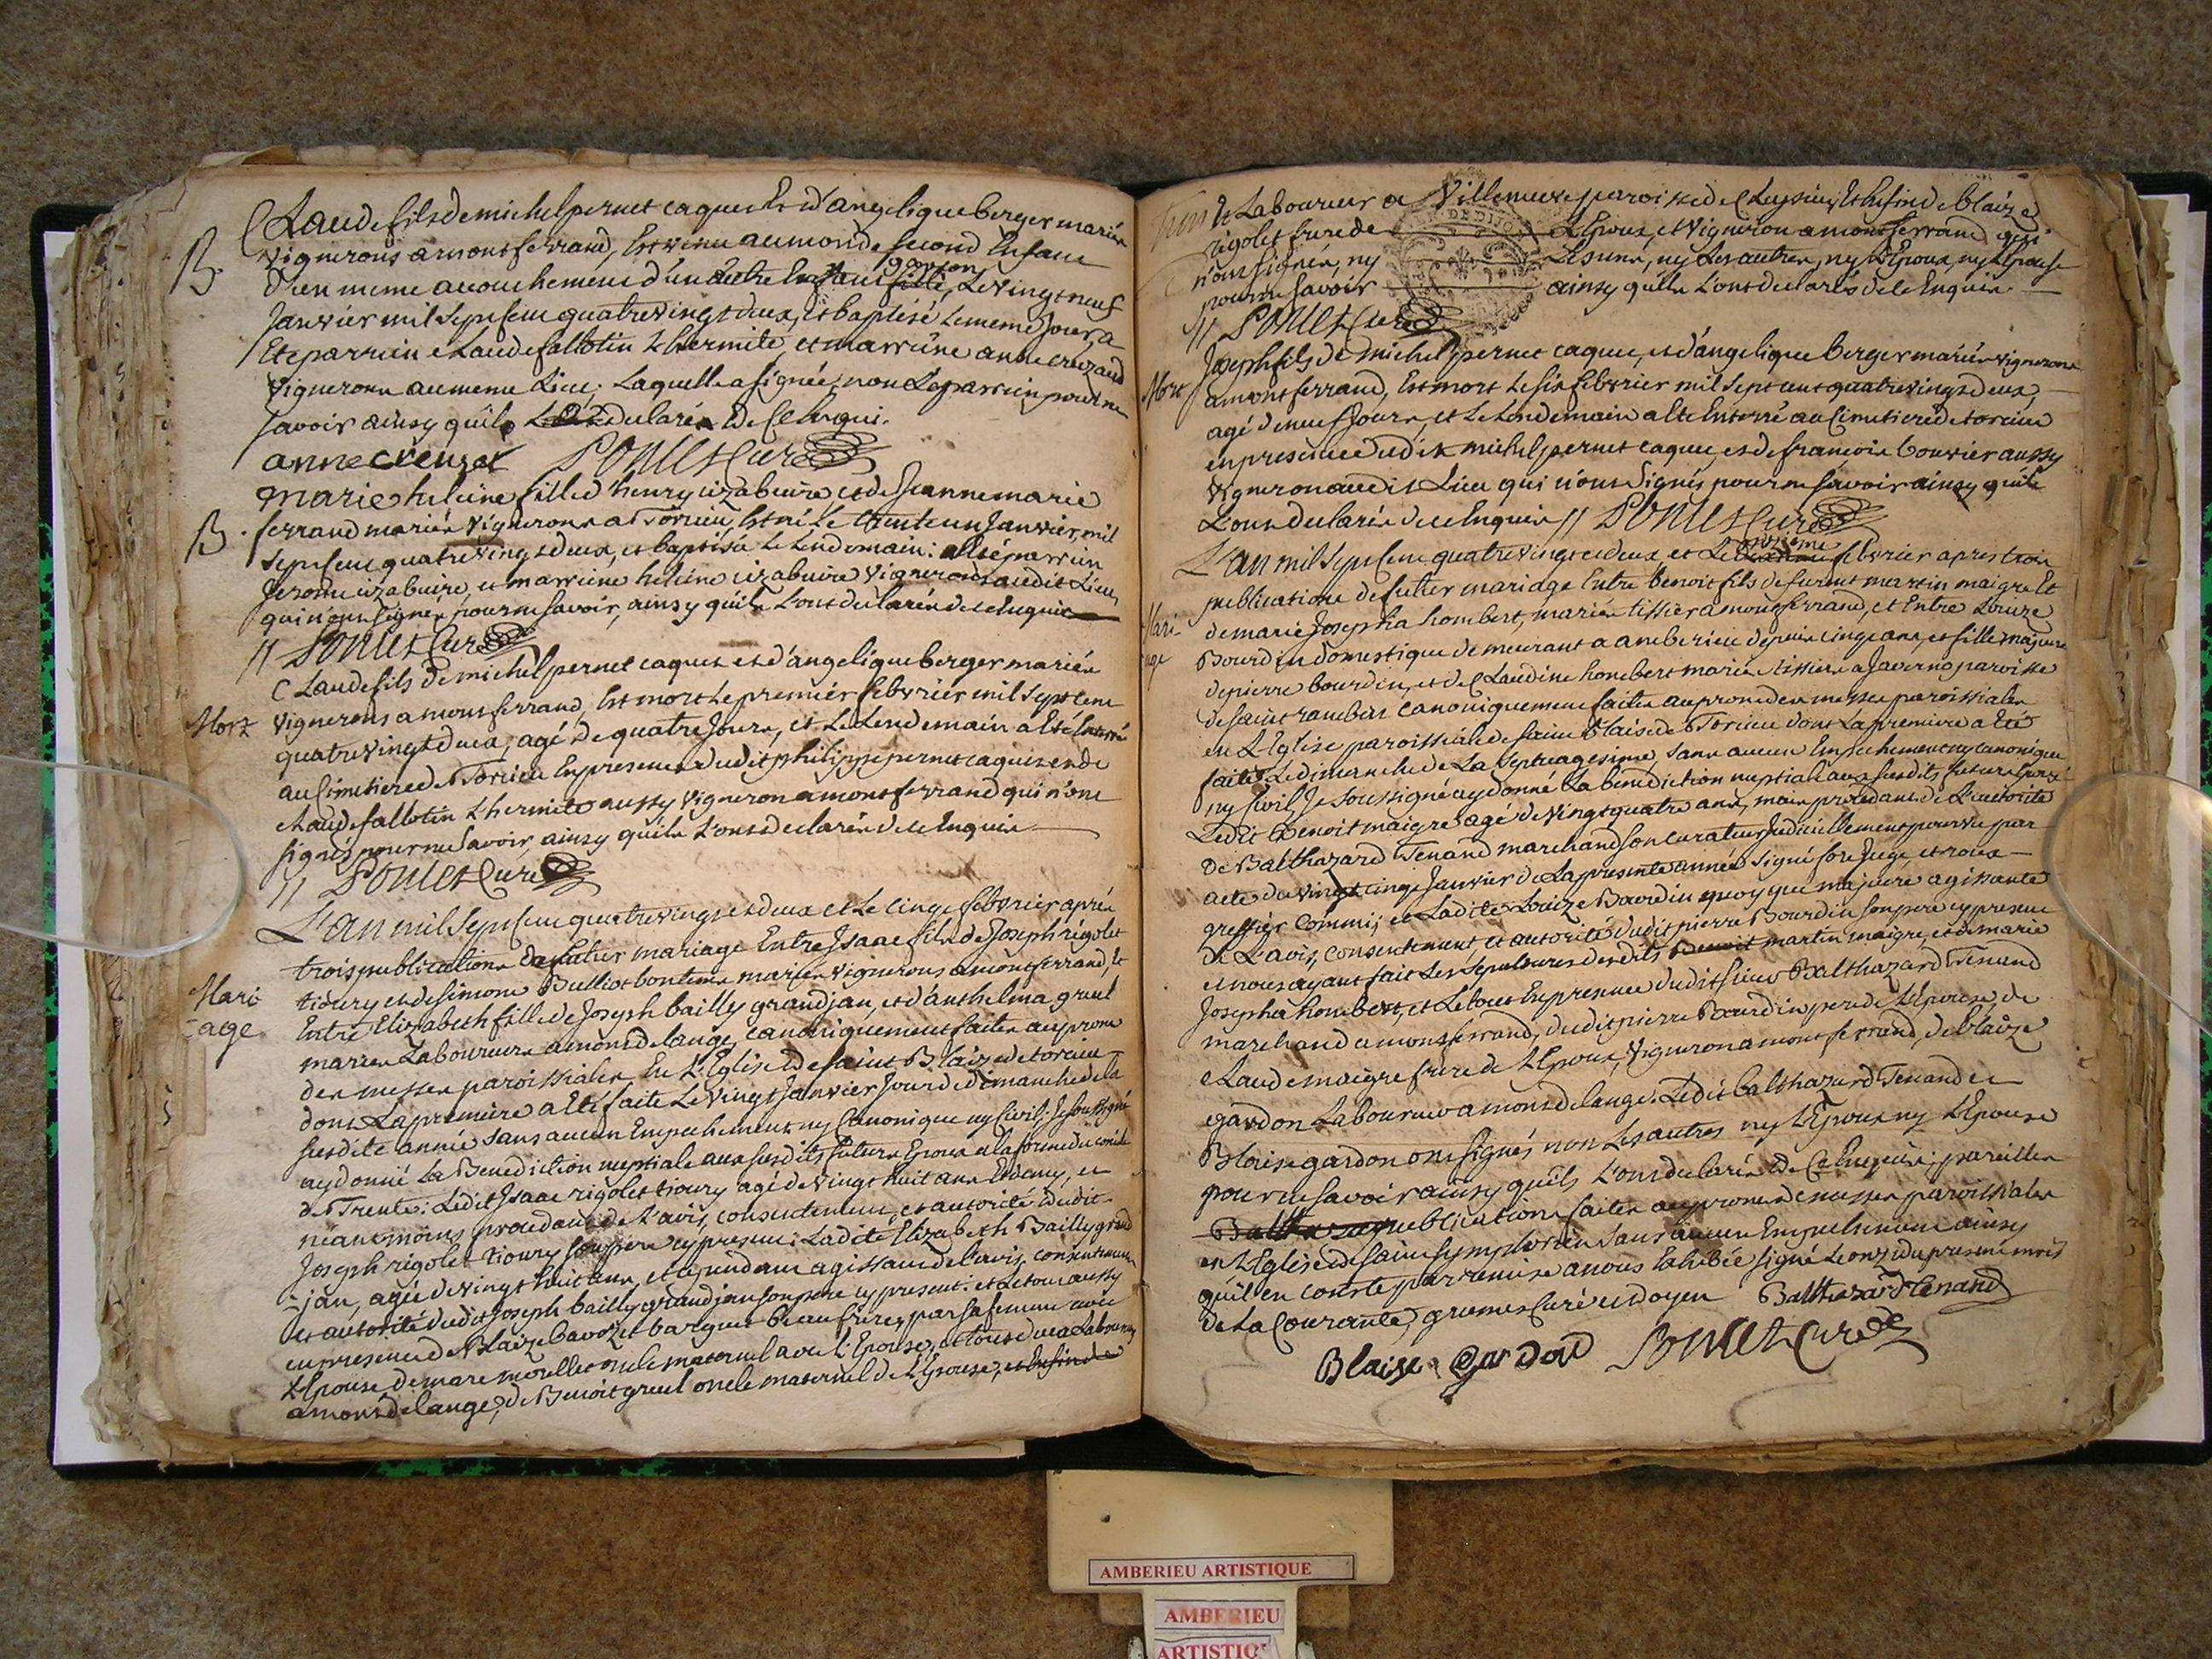 Claude fils de michel pernet caques Et d'angelique berger mariés
B. vignerons a montferrand, Est venu au monde second Enfant
d'un meme accouchement d'un autre Enfant fille, garçon Le vingt neuf
Janvier mil sept cent quatre vingt deux, Et baptisé Le meme Jour, a
Eté parrein Claude fallotin L'hermite, et marreine anne creuzand
vignerons au meme Lieu; Laquelle a signée, non Le parrein pour ne
savoir ainsy qu'ils déclarés De Ce Enquis.
anne creuzet Poncet Curé
marie heleine fille d'henry cizabuire et de Jeanne marie
B. ferrand mariés vignerons a Torcieu, Est né Le trente un Janvier, mil
sept cent quatre vingt deux, et baptisée Le Lendemain: a Eté parrein
Jerome cizabuire, et marreine heleine cizabuire vignerons audit Lieu,
qui n'ont signer pour ne savoir, ainsy qu'ils L'ont declarés de ce Enquis
// Poncet Curé
Claude fils de michel pernet caques et d'angelique berger mariés
Mort vignerons a montferrand, Est mort Le premier febvrier mil sept cent
quatre vingt deux, agé de quatre Jours, et Le Lendemain a Eté Enterré
au Cimetiere de Torcieu En presence dudit philippe pernet caques et de
claude fallotin L'hermite aussy vigneron a montferrand qui n'ont
signés pour ne savoir, ainsy qu'ils L'ont declarés de ce Enquis
// Poncet Curé
L'an mil sept Cent quatre vingt et deux et Le cinq febvrier aprés
trois publications de futur mariage Entre Isaac fils de Joseph rigolet
Mari tioury et de simone Bulliot bontems mariés vignerons a montferrand, Et
age Entre Elizabeth fille de Joseph bailly grandjan, et d'anthelma greul
mariés Laboureurs a montdelange, canoniquement faites au prone
des messes paroissiales En L'Eglise de saint Blaize de torcieu
dont La premiere a Eté faite Le vingt Janvier Jour de dimanche de la
susdite année sans aucun Empechement ny Canonique ny Civil; Je soussigné
ay donné La Benediction nuptiale aux susdits futurs Epoux a la forme du concile
de Trente: Ledit Isaac rigolet tioury agé de vingt huit ans Et demy, et
néanmoins procedant de L'avis, consentement, et autorité dudit
Joseph rigolet tioury son pere cy present: Ladite Elizabeth Bailly grand
jan, agée de vingt huit ans, et cependant agissant de L'avis, consentement
et autorité dudit Joseph bailly grandjan son pere cy present: et Le tout aussy
en presence de Blaize bavozet barquet beau frere, par sa femme avec
L'Epouse de marc morellet oncle maternel avec L'Epouse, et tous deux Laboureurs
a montdelange, de Benoit greul oncle maternel de L'Epouse, et Enfin de
Et Laboureur a Villeneuve paroisse de Cleyzieu, Et Enfin de blaize
rigolet frere de L'Epoux, et vigneron a montferrand qui
n'ont signés, ny Les uns, ny Les autres, ny L'Epoux, ny L'Epouse
pour ne savoir ainsy qu'ils L'ont declarés de ce Enquis.
// Poncet Curé
Joseph fils de michel pernet caques, et d'angelique berger mariés vignerons
Mort a montferrand, Est mort Le six febvrier mil sept cent quatre vingt deux,
agé de neuf Jours, et Le Lendemain a Eté Enterré au Cimetiere de torcieu
en presence dudit michel pernet caques, et de françois bouvier aussy
vigneron audit Lieu qui n'ont signés pour ne savoir ainsy qu'ils
L'ont declarés de ce Enquis // Poncet Curé
L'an mil sept Cent quatre vingt et deux, et Le onzieme febvrier apres trois
publications de futur mariage Entre benoit fils de furent martin maigre Et
Mari de marie Josepha hombert, mariés tissier a montferrand, et Entre Louize
age Bourdin domestique demeurant a amberieu depuis cinq ans, et fille majeure
de pierre bourdin, et de Claudine hombert mariés tissiers a Javerno paroisse
de saint rambert canoniquement faites au prone des messes paroissiales
en L'Eglise paroissiale de saint Blaise de Torcieu dont La premiere a Eté
faite Le dimanche de La septuagesime, sans aucun Empechement ny canonique
ny Civil, Je soussigné ay donné La benediction nuptiale aux susdits futurs Epoux:
Ledit Benoit maigre agé de vingt quatre ans, mais procedant de L'autorité
de Balthazard Tenand marchand son curateur Judiciellement pourvu par
acte du vingt cinq Janvier de La presente année signé fore Juge, et roux
greffier commis; et Ladite Louize Bourdin quoy que majeure agissante
de L'avis, consentement et autorité dudit pierre Bourdin son pere cy present
et nous ayant fait Les sepultures desdits Benoit martin maigre, et de marie
Josepha hombert, et Le tout En presence dudit sieur Balthazard Tenand
marchand a montferrand, dudit pierre Bourdin pere de L'Epouse, de
Claude maigre frere de L'Epoux, vigneron a montferrand, de blaize
gardon Laboureur a montdelange. Ledit balthazard Tenand et
Blaise gardon ont signés non Les autres ny L'Epoux ny L'Epouse
pour ne savoir ainsy qu'ils L'ont declarés De Ce Enquis; pareilles
Balthazar publications faites au prone des messes paroissiales
en L'Eglise de saint symphorien sans aucun Empechement ainsy
qu'il en conste par remise a nous Exhibée signé Le onze du present mois
de La Courante, grumet Curé et doyen Balthazard tenand
Blaise gardon Poncet Curé
AMBERIEU ARTISTIQUE
AMBERIEU
ARTISTIQ